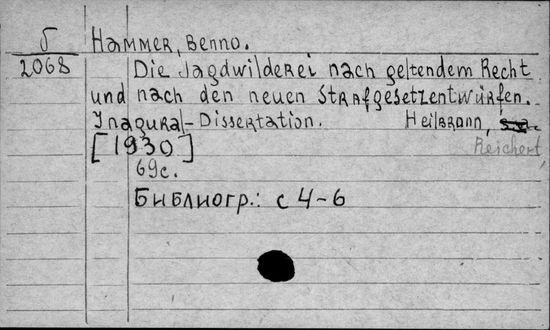 5 Hammer, Benno.
2068 Die Jagdwilderei nach geltendem Recht
und nach den neuen Strafgesetzentwürfen.
Inagural-Dissertation. Heilbronn,
[1930] Reichert
69с.
Библиогр.: с 4-6